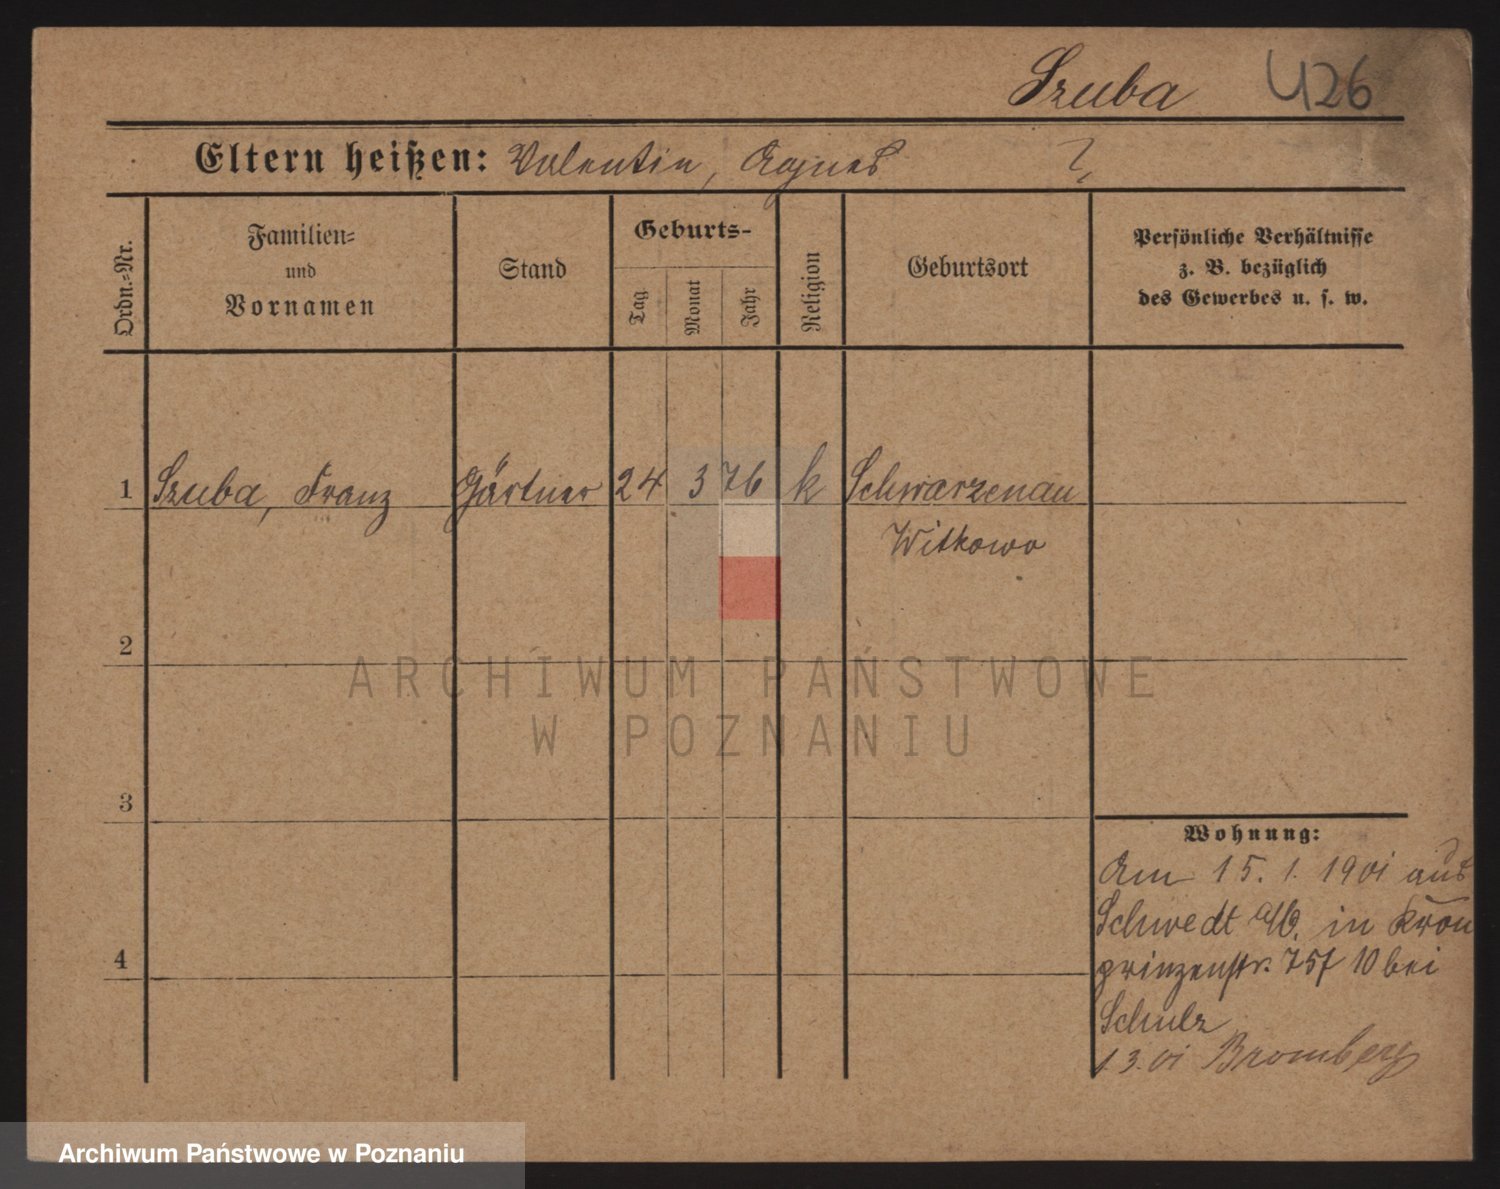 Szuba 426
Eltern heißen: Valentin, Agnes ?
Ordn.-Nr.
Familien-
und
Vornamen
Stand
Geburts-
Tag
Monat
Jahr
Religion
Geburtsort
Persönliche Verhältnisse
z. B. bezüglich
des Gewerbes u. s. w.
1 Szuba, Franz Gärtner 24 3 76 k Schwarzenau
Witkowo
2
ARCHIWUM PAŃSTWOWE
W POZNANIU
3
Wohnung:
Am 15. 1. 1901 aus
Schwedt a/O. in Kron
prinzenstr. 10 bei
4
Schulz
1.3.01 Bromberg
Archiwum Państwowe w Poznaniu